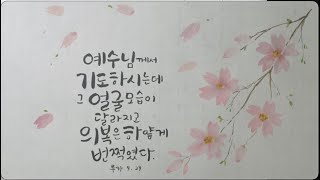 예수님께서
기도하시는데
그 얼굴 모습이
달라지고
의복은 하얗게
번쩍였다.
루카 9, 29